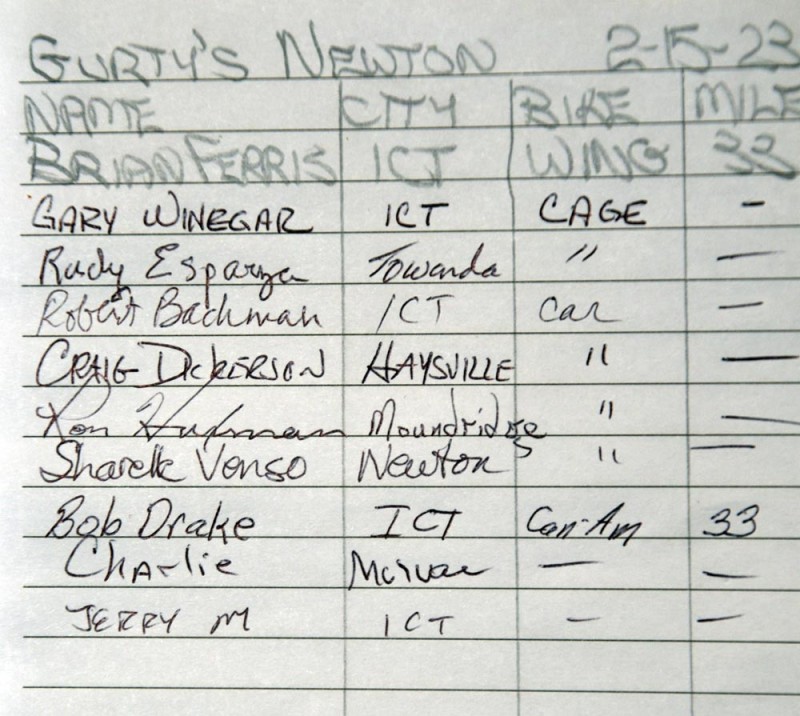 GURTY'S NEWTON 2-15-23
NAME CITY BIKE MILE
BRIAN FERRIS ICT WING 33
GARY WINEGAR ICT CAGE -
Rudy Esparza Towanda " —
Robert Bachman ICT Car —
CRAIG DICKERSON HAYSVILLE " —
Ron Moundridge " —
Sharelk Venso Newton " —
Bob Drake ICT Can-Am 33
Charlie — —
JERRY M ICT - -